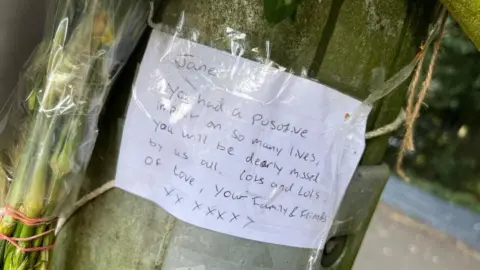 Jane
You had a positive
impact on so many lives,
you will be dearly missed
by us all. lots and lots
of love, your Family & Friends
xx xxxxx